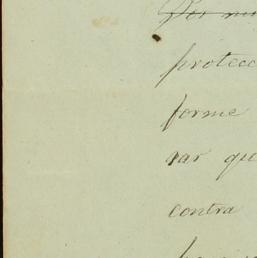 Por
protecc
forme
rar que
contra